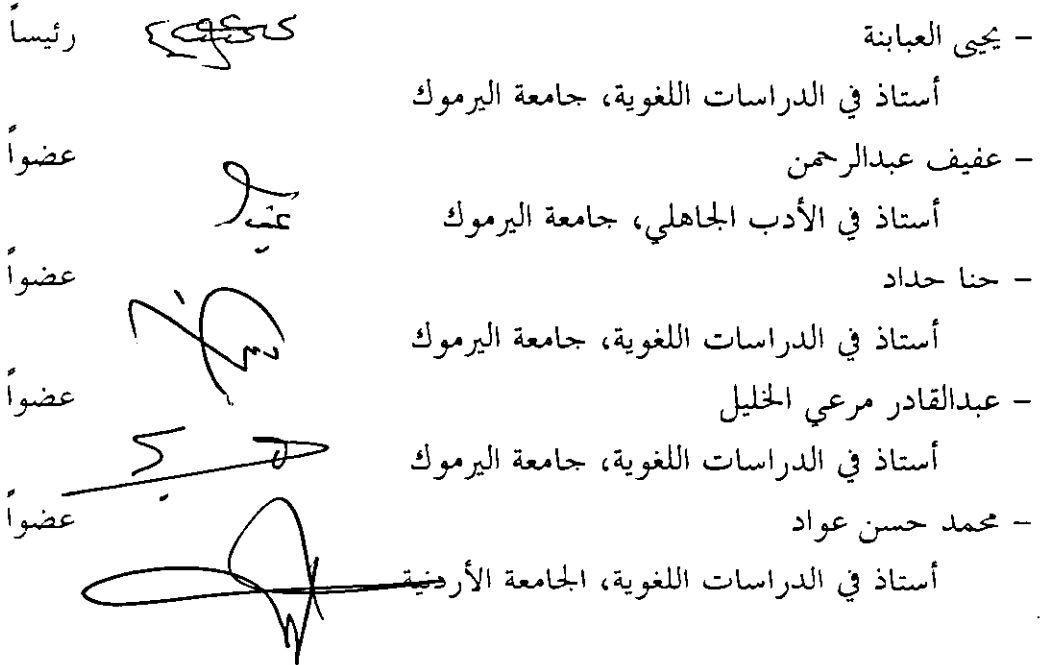 – يحيى العبابنة رئيساً
أستاذ في الدراسات اللغوية، جامعة اليرموك
– عفيف عبدالرحمن عضواً
أستاذ في الأدب الجاهلي، جامعة اليرموك
– حنا حداد عضواً
أستاذ في الدراسات اللغوية، جامعة اليرموك
– عبدالقادر مرعي الخليل عضواً
أستاذ في الدراسات اللغوية، جامعة اليرموك
– محمد حسن عواد عضواً
أستاذ في الدراسات اللغوية، الجامعة الأردنية